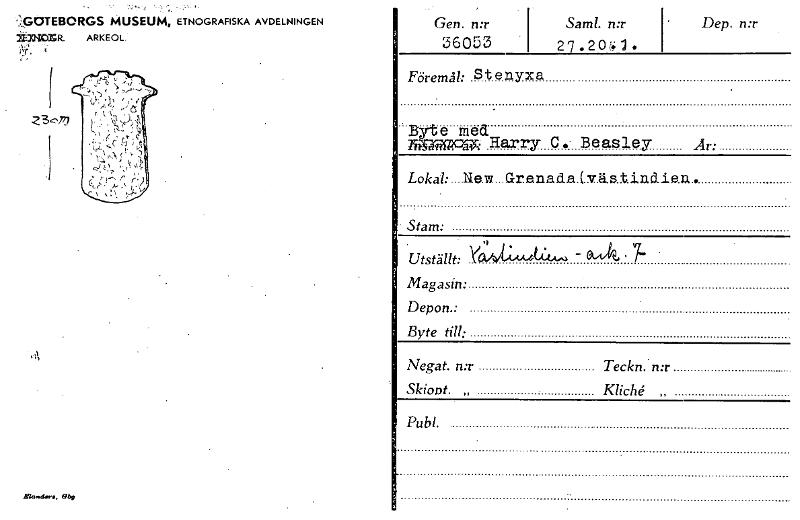 GÖTEBORGS MUSEUM, ETNOGRAFISKA AVDELNINGEN
ARKEOL.
23cm
Elanders, Gbg
Gen. n:r Saml. n:r Dep. n:r
36053 27.20.1.
Föremål: Stenyxa
Byte med
Harry C. Beasley År:
Lokal: New Grenada(västindien.
Stam:
Utställt: Västindien - ark. 7
Magasin:
Depon.:
Byte till:
Negat. n:r Teckn. n:r
Skiopt. „ Kliché „
Publ.